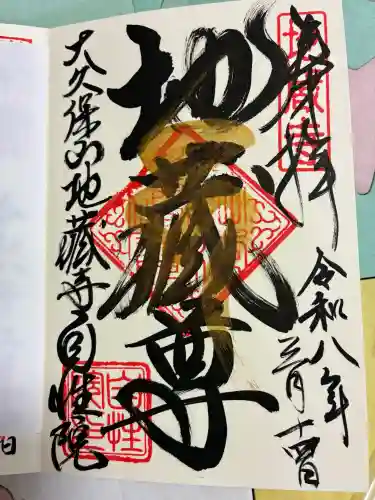 奉拝
令和八年
三月十四日
地蔵尊
大久保山地蔵寺回性院
日